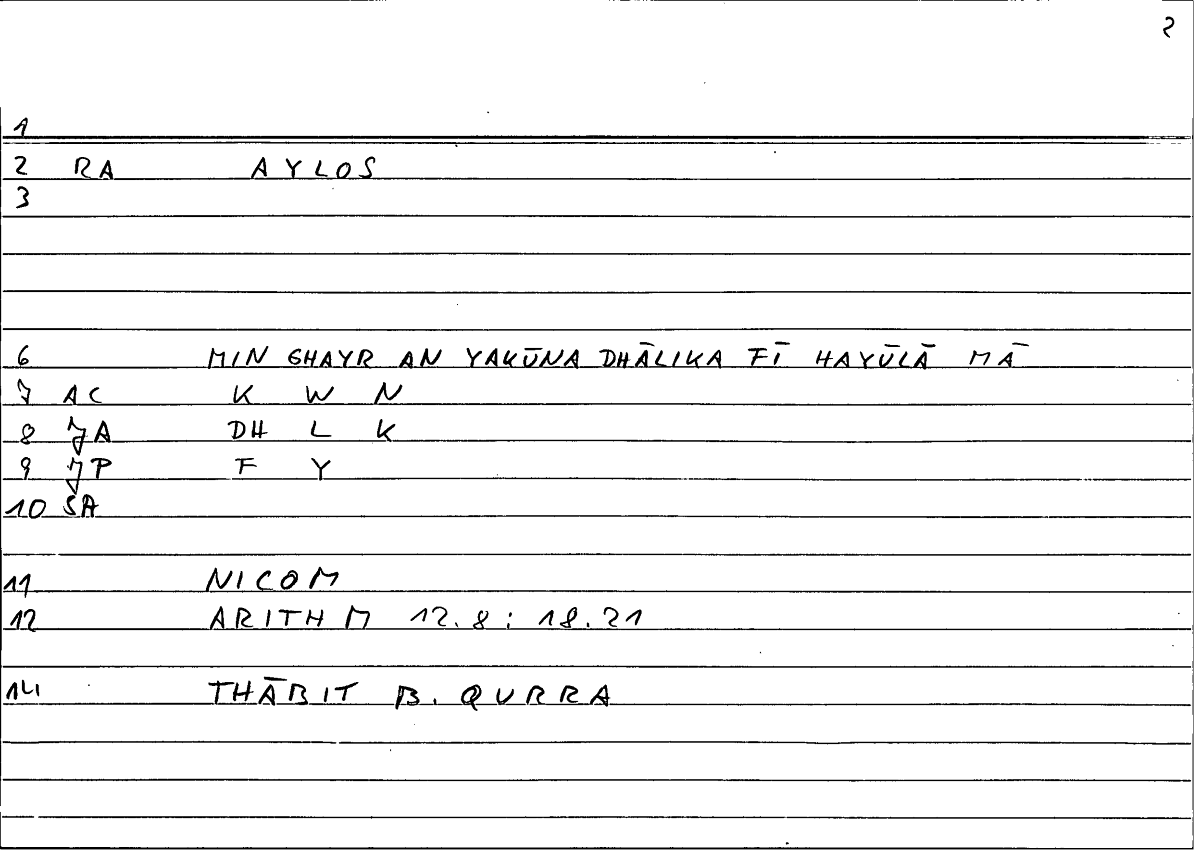 2
1
2 RA AYLOS
3
6 MIN GHAYR AN YAKŪNA DHĀLIKA FĪ HAYŪLĀ MĀ
7 AC K W N
8 JA DH L K
9 JP F Y
10 SA
11 NICOM
12 ARITHM 12.8; 18.21
14 THĀBIT B. QURRA